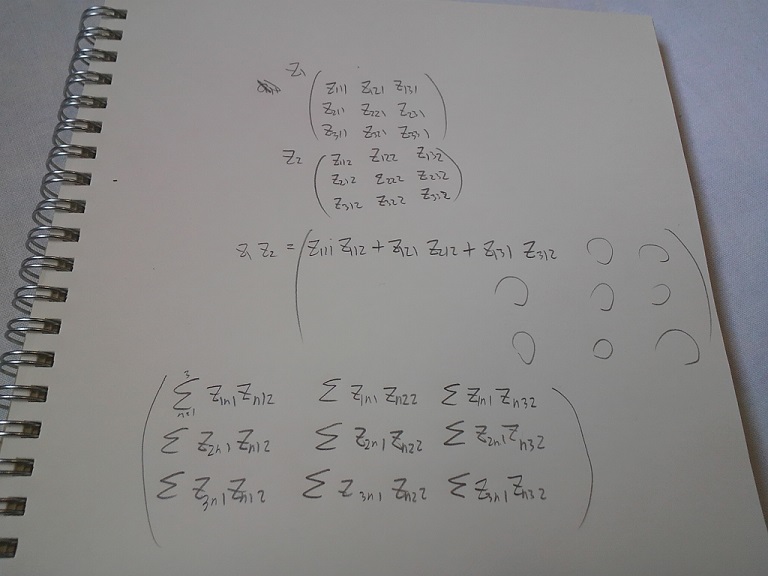 Z₁ ( Z₁₁₁ Z₁₂₁ Z₁₃₁
Z₂₁₁ Z₂₂₁ Z₂₃₁
Z₃₁₁ Z₃₂₁ Z₃₃₁ )
Z₂ ( Z₁₁₂ Z₁₂₂ Z₁₃₂
Z₂₁₂ Z₂₂₂ Z₂₃₂
Z₃₁₂ Z₃₂₂ Z₃₃₂ )
Z₁ Z₂ = ( Z₁₁₁ Z₁₁₂ + Z₁₂₁ Z₂₁₂ + Z₁₃₁ Z₃₁₂ ○ ○
○ ○ ○
○ ○ ○ )
( ∑ₙ₌₁³ Z₁ₙ₁ Zₙ₁₂ ∑ Z₁ₙ₁ Zₙ₂₂ ∑ Z₁ₙ₁ Zₙ₃₂
∑ Z₂ₙ₁ Zₙ₁₂ ∑ Z₂ₙ₁ Zₙ₂₂ ∑ Z₂ₙ₁ Zₙ₃₂
∑ Z₃ₙ₁ Zₙ₁₂ ∑ Z₃ₙ₁ Zₙ₂₂ ∑ Z₃ₙ₁ Zₙ₃₂ )